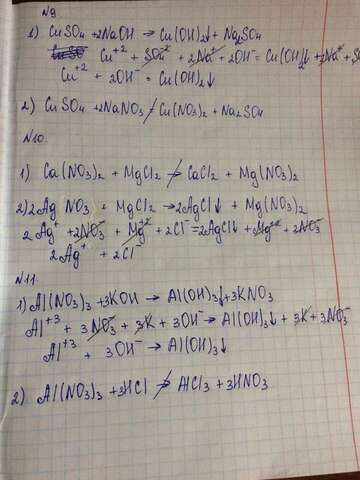 N9
1) CuSO₄ + 2NaOH → Cu(OH)₂↓ + Na₂SO₄
Cu⁺² + SO₄⁻² + 2Na⁺ + 2OH⁻ = Cu(OH)₂↓ + 2Na⁺ + SO
Cu⁺² + 2OH⁻ = Cu(OH)₂↓
2) CuSO₄ + 2NaNO₃ ≠ Cu(NO₃)₂ + Na₂SO₄
N10.
1) Ca(NO₃)₂ + MgCl₂ ↛ CaCl₂ + Mg(NO₃)₂
2) 2AgNO₃ + MgCl₂ → 2AgCl↓ + Mg(NO₃)₂
2Ag⁺ + 2NO₃⁻ + Mg⁺² + 2Cl⁻ = 2AgCl↓ + Mg⁺² + 2NO₃⁻
2Ag⁺ + 2Cl⁻
N11
1) Al(NO₃)₃ + 3KOH → Al(OH)₃↓ + 3KNO₃
Al⁺³ + 3NO₃⁻ + 3K + 3OH⁻ → Al(OH)₃↓ + 3K + 3NO₃⁻
Al⁺³ + 3OH⁻ → Al(OH)₃↓
2) Al(NO₃)₃ + 3HCl ↛ AlCl₃ + 3HNO₃